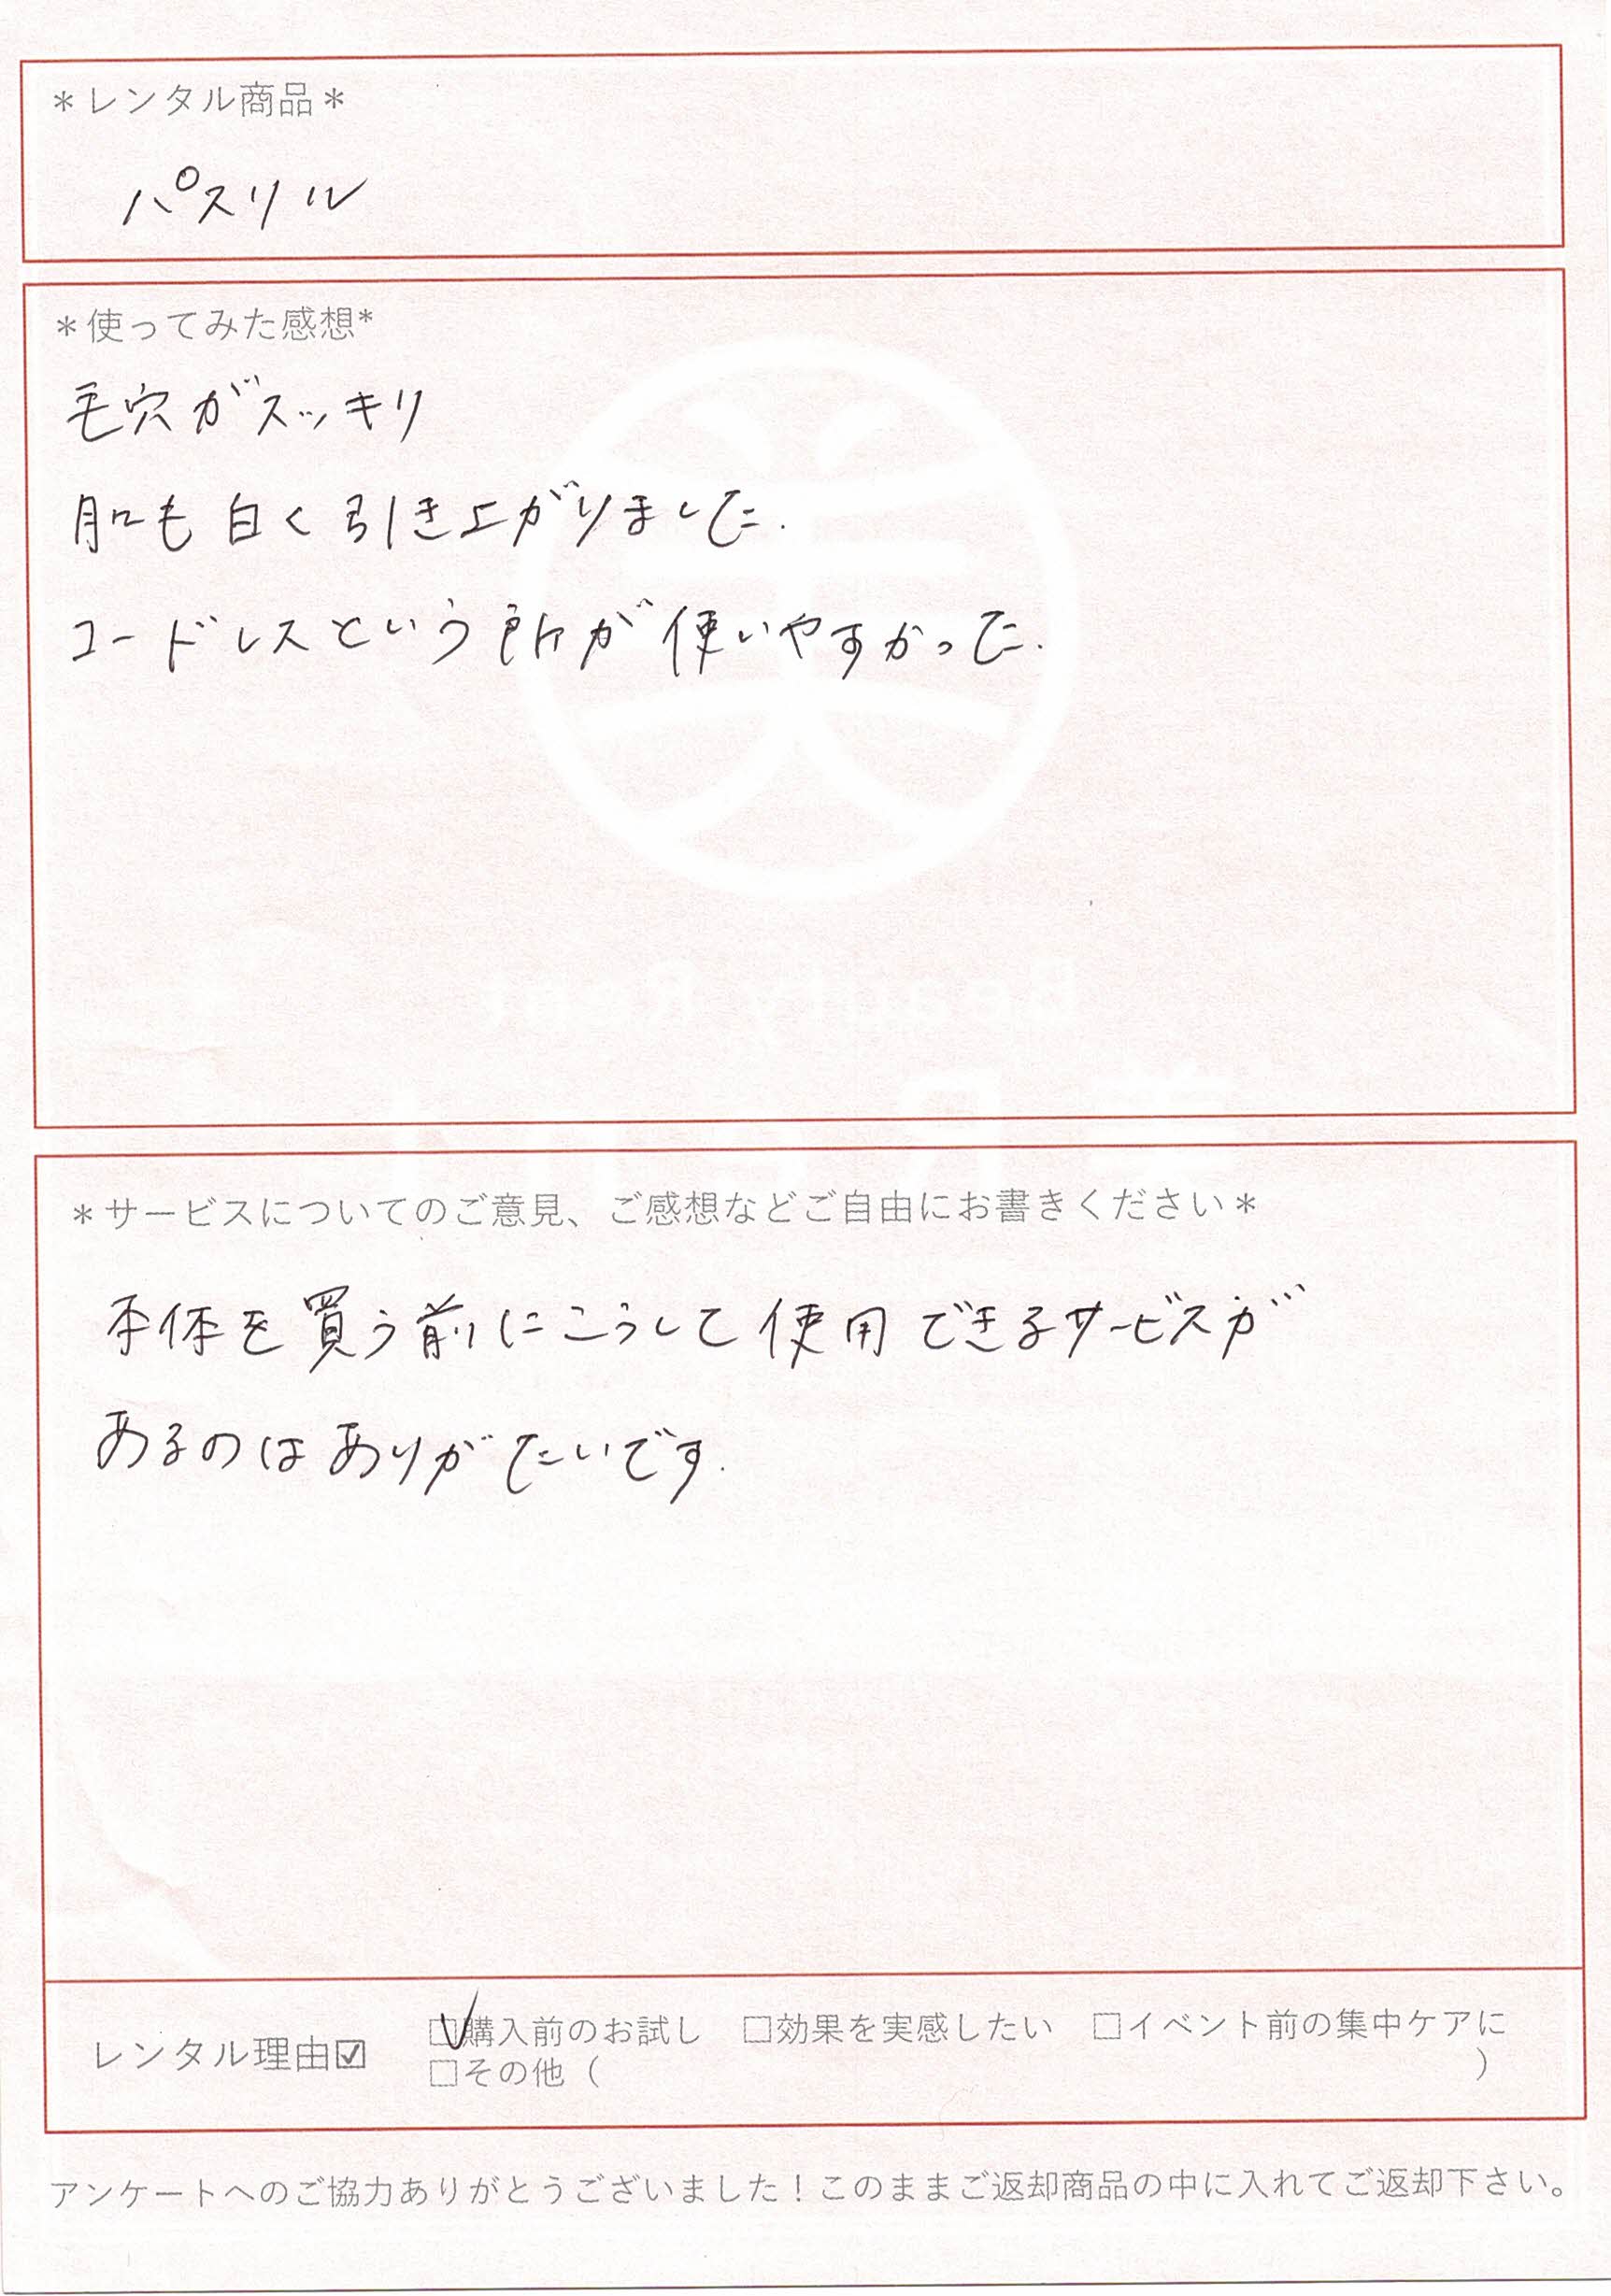 ＊レンタル商品＊
パスリル
＊使ってみた感想*
毛穴がスッキリ
肌も白く引き上がりました.
コードレスという所が使いやすかった.
＊サービスについてのご意見、ご感想などご自由にお書きください＊
本体を買う前にこうして使用できるサービスが
あるのはありがたいです.
レンタル理由☑ ☑購入前のお試し □効果を実感したい □イベント前の集中ケアに
□その他（ ）
アンケートへのご協力ありがとうございました！このままご返却商品の中に入れてご返却下さい。